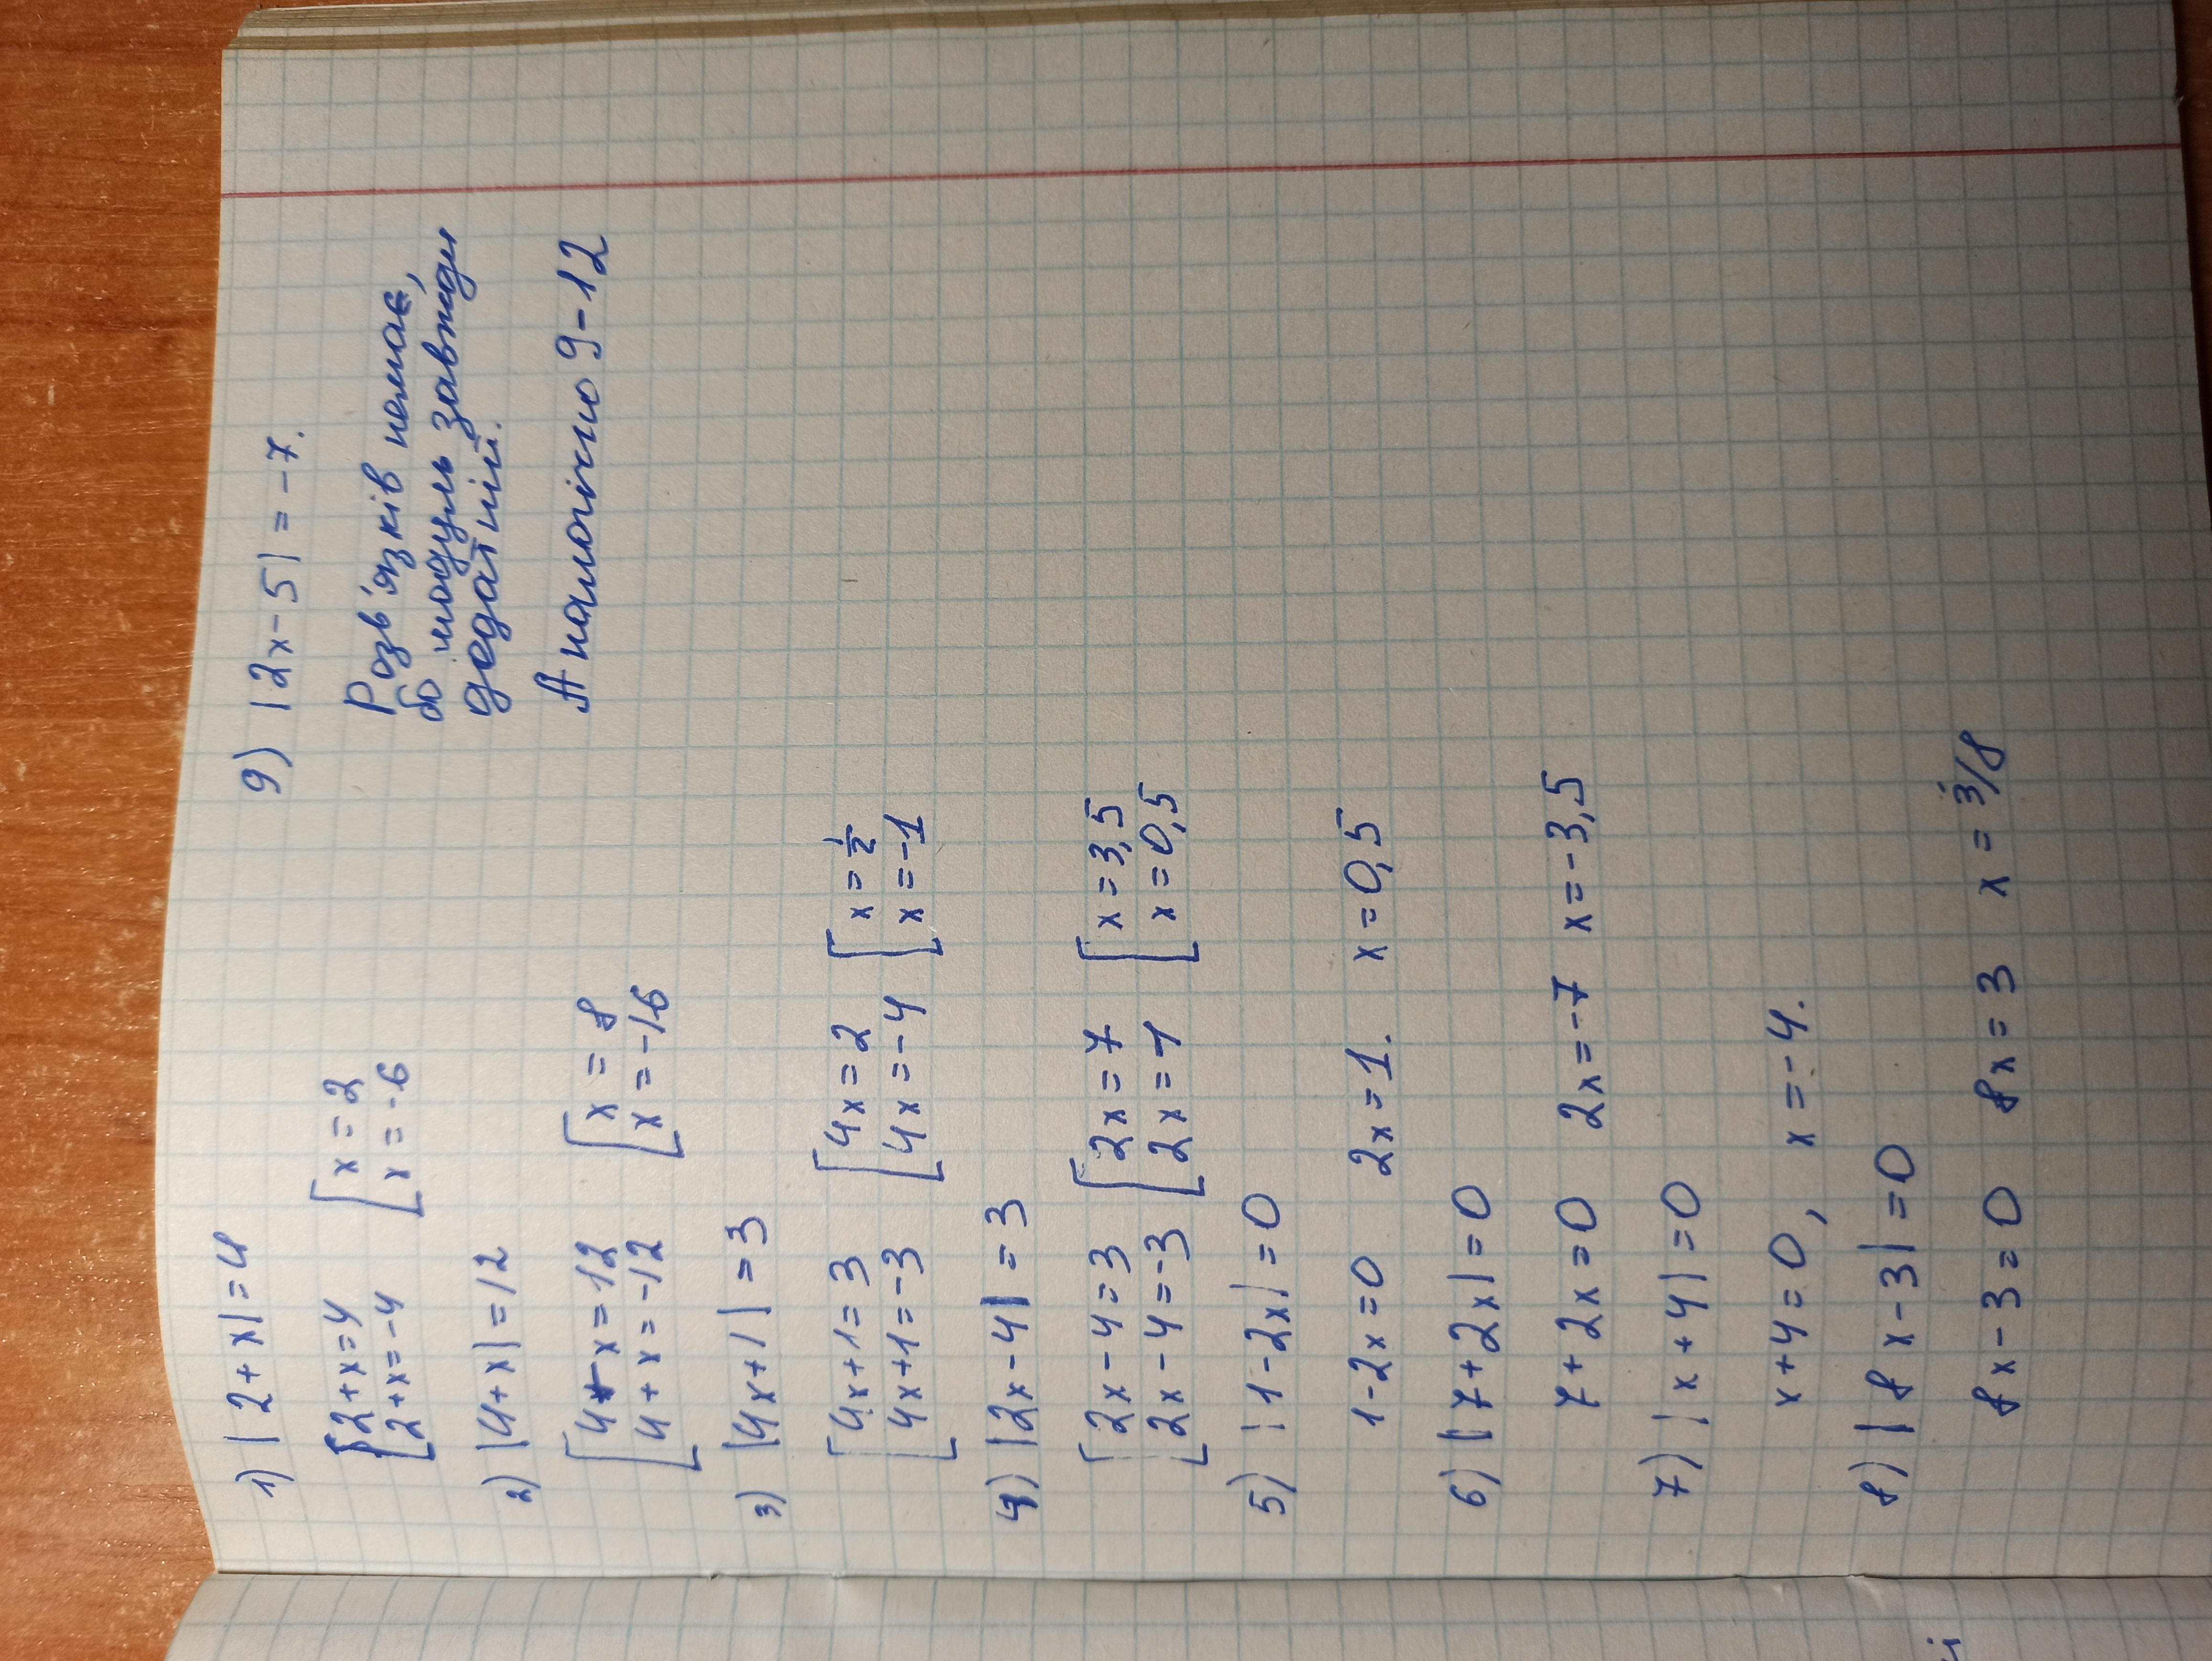 1) |2+x|=4
[2+x=4 [x=2
[2+x=-4 [x=-6
2) |4+x|=12
[4+x=12 [x=8
[4+x=-12 [x=-16
3) |4x+1|=3
[4x+1=3 [4x=2 [x=½
[4x+1=-3 [4x=-4 [x=-1
4) |2x-4|=3
[2x-4=3 [2x=7 [x=3,5
[2x-4=-3 [2x=1 [x=0,5
5) |1-2x|=0
1-2x=0 2x=1. x=0,5
6) |7+2x|=0
7+2x=0 2x=-7 x=-3,5
7) |x+4|=0
x+4=0, x=-4.
8) |8x-3|=0
8x-3=0 8x=3 x=3/8
9) |2x-5|=-7.
Розв'язків немає,
бо модуль завжди
додатній.
Аналогічно 9-12